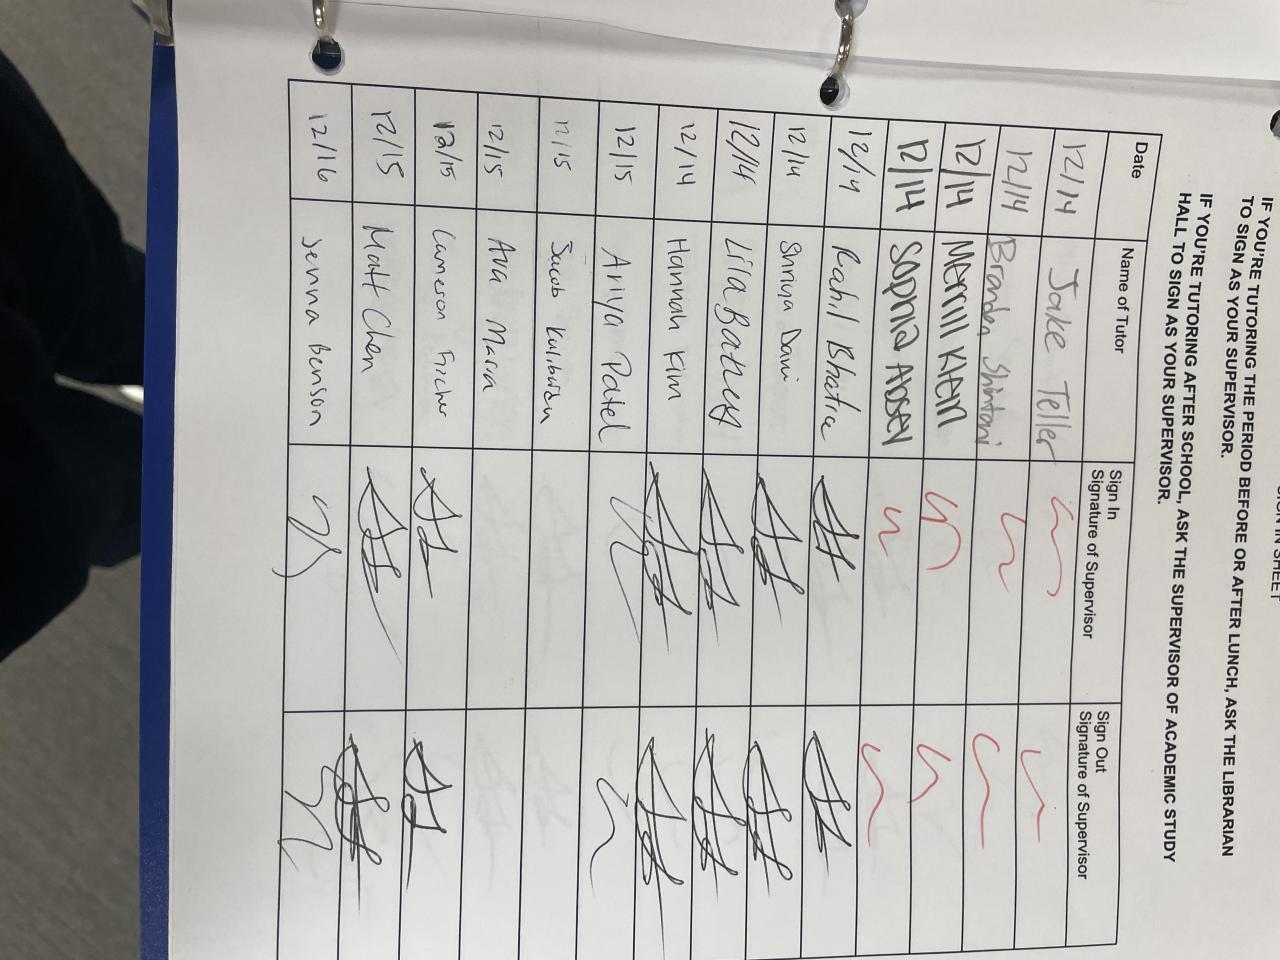 SIGN IN SHEET
IF YOU'RE TUTORING THE PERIOD BEFORE OR AFTER LUNCH, ASK THE LIBRARIAN
TO SIGN AS YOUR SUPERVISOR.
IF YOU'RE TUTORING AFTER SCHOOL, ASK THE SUPERVISOR OF ACADEMIC STUDY
HALL TO SIGN AS YOUR SUPERVISOR.
Date Name of Tutor Sign In Signature of Supervisor Sign Out Signature of Supervisor
12/14 Jake Teller
12/14 Brandon Shintani
12/14 Merrill Klein
12/14 Sophia
12/14 Rahil Bhatia
12/14 Shriya
12/14 Lila
12/14 Hannah Kim
12/15 Ariya Patel
12/15 Jacob
12/15 Ava
12/15 Cameron Fischer
12/15 Matt Chen
12/16 Jenna Benson